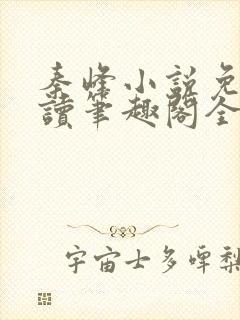 秦峰小说免
讀筆趣閣全
宇宙士多啤梨